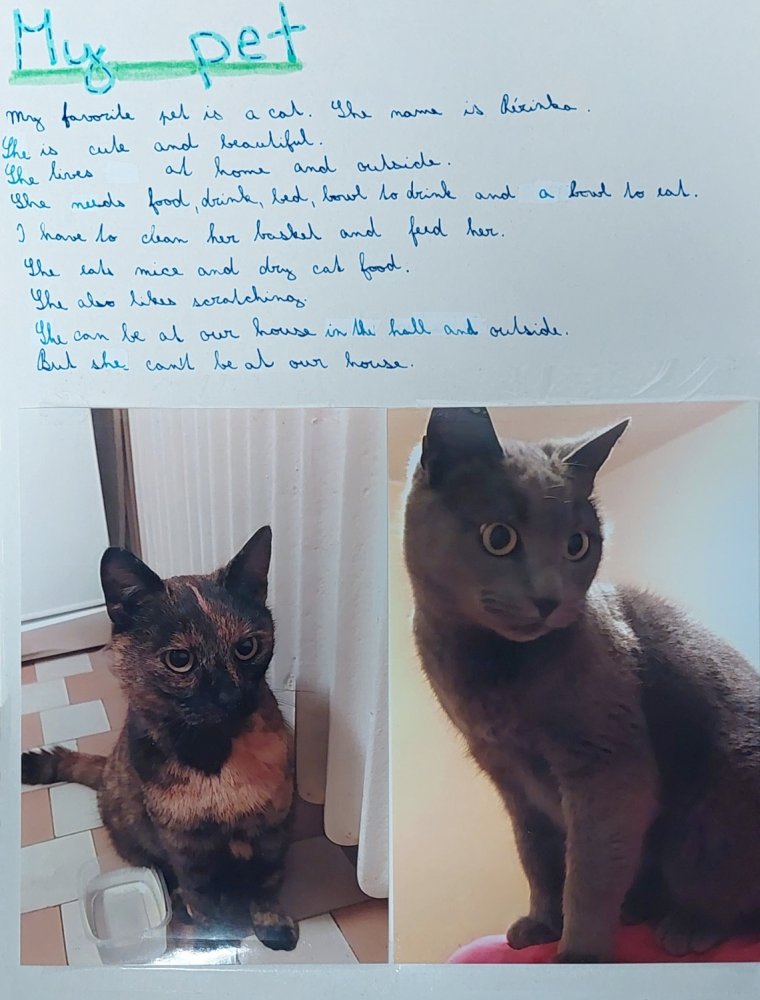 My pet
My favorite pet is a cat. She name is
She is cute and beautiful.
She lives at home and outside.
She needs food, drink, bed, bowl to drink and a bowl to eat.
I have to clean her basket and feed her.
She eats mice and dry cat food.
She also likes scratching.
She can be at our house in the hall and outside.
But she can't be at our house.